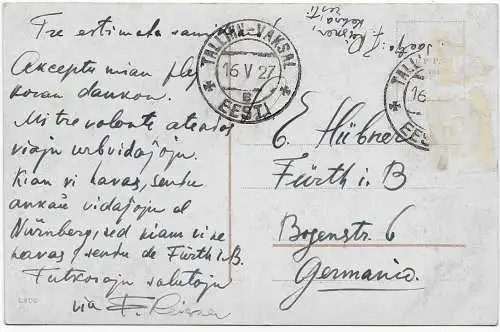 Tre estimata
Akceptu mian plej
koran dankon.
Mi tre volonte atendos
viajn urbvidaĵojn.
Kiam vi havas, sendu
ankaŭ vidaĵojn d
Nürnberg, sed kiam vi ne
havas, sendu de Fürth i. B.
Tutkorajn salutojn
via F.
TALLINN-VAKSAL
16 V 27
EESTI
TALLINN
16
EESTI
E. Hübner
Fürth i. B
Bogenstr. 6
Germanio.